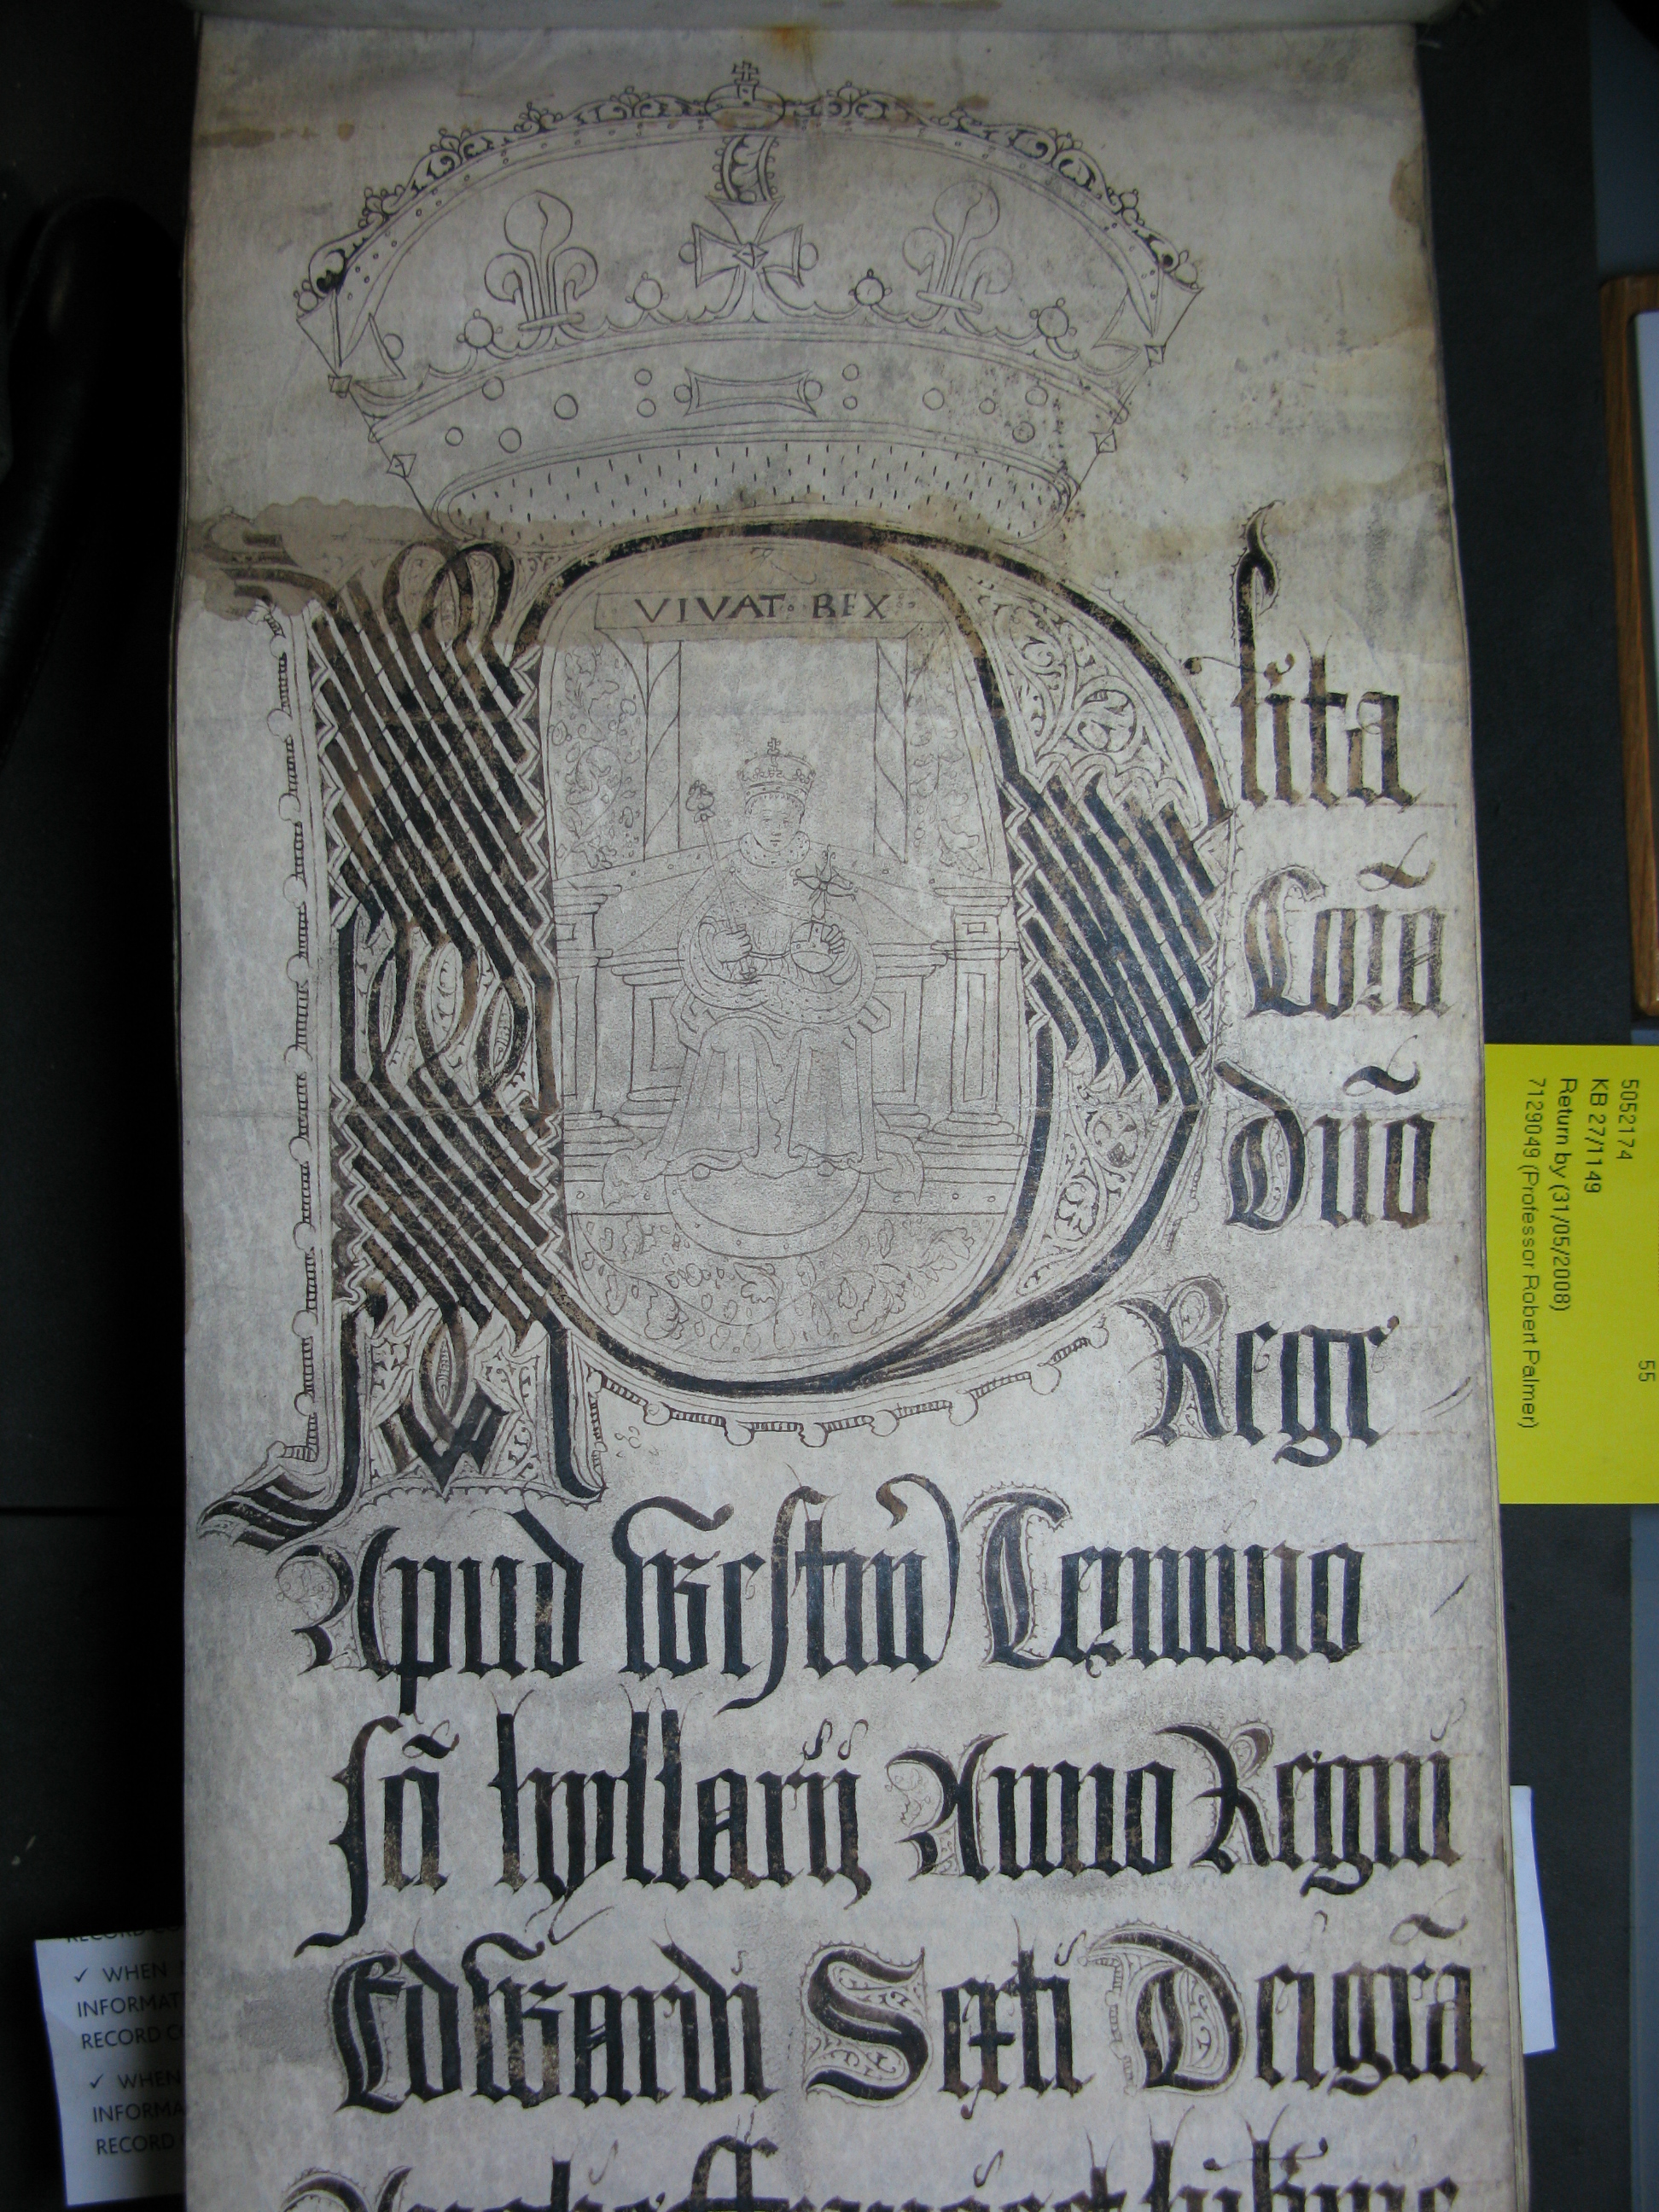 VIVAT REX
Plita
Corã
Dño
Rege
Apud Westm̃ Termino
sc̃i hyllarij Anno Regni
Edwardi Sexti Dei gr̃a
5052174 55
KB 27/1149
Return by (31/05/2008)
7129049 (Professor Robert Palmer)
✓ WHEN
INFORMAT
RECORD
✓ WHEN
INFORMA
RECORD